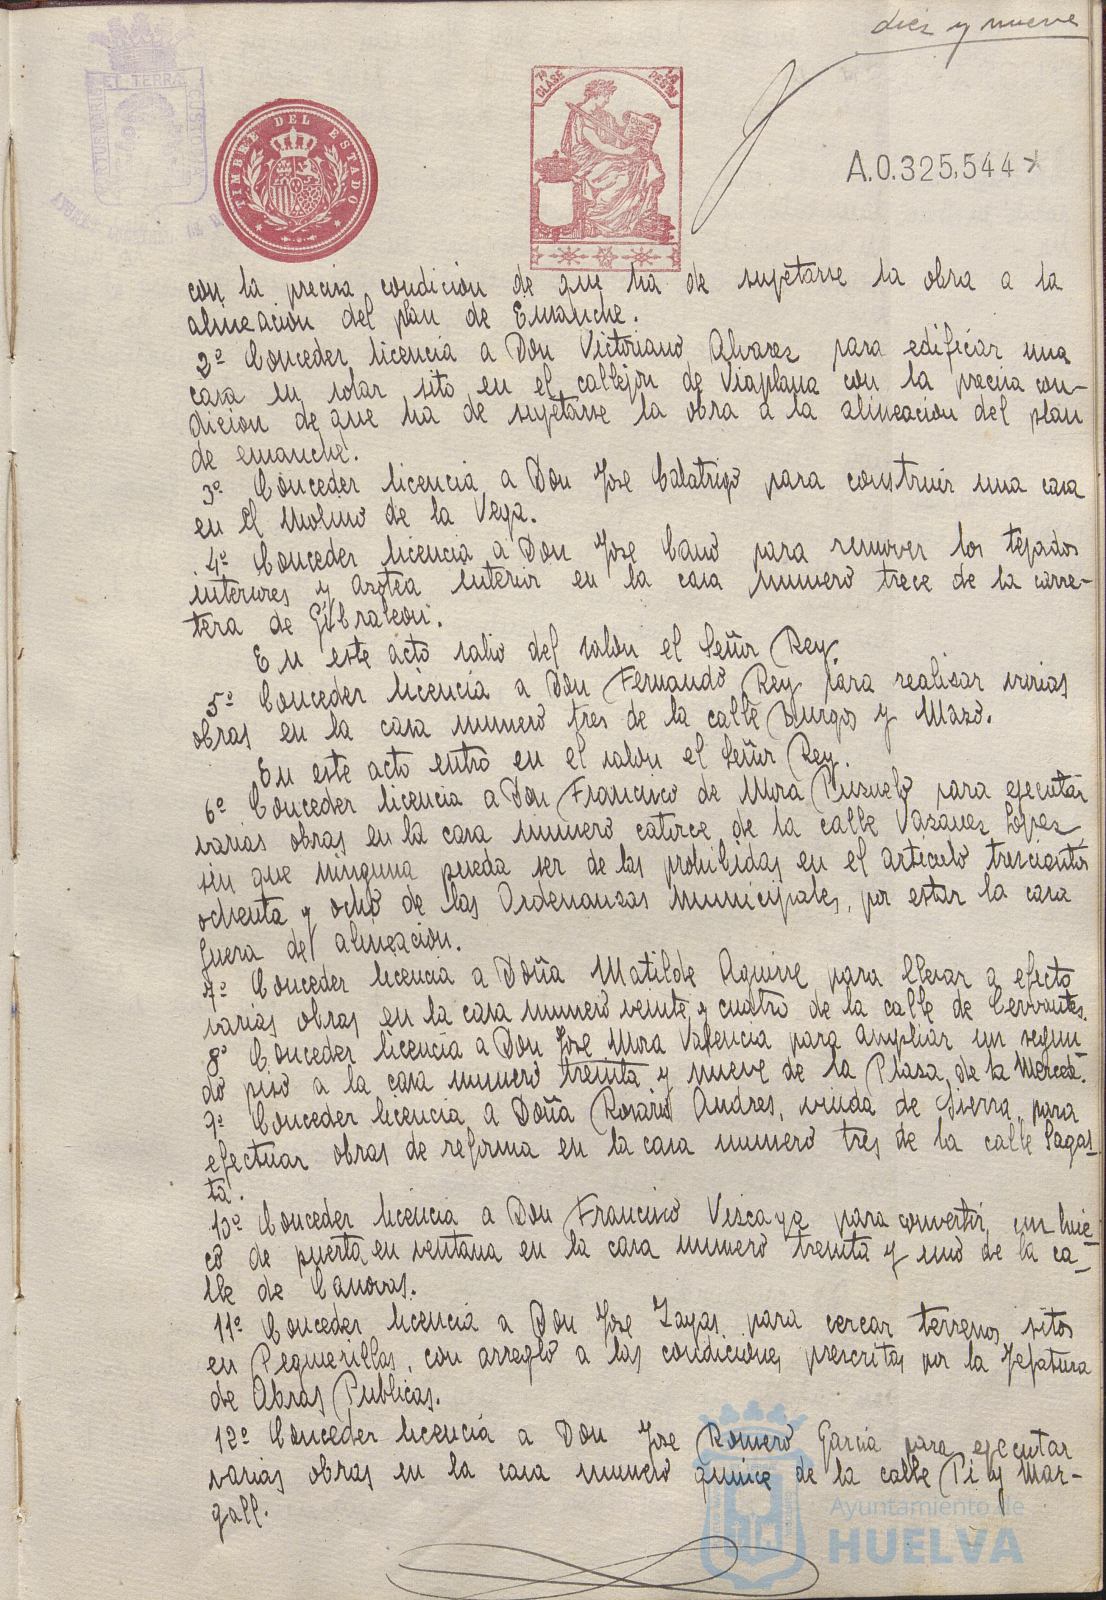 diez y nueve
ET TERRÆ
TIMBRE DEL ESTADO
7ª CLASE
1 PESETA
A.0.325,544
con la precisa condicion de que ha de sujetarse la obra a la
alineacion del plan de Emanche.
2º Conceder licencia a Don Victoriano Alvarez para edificar una
casa en solar sito en el callejon de Viaplana con la precisa con-
dicion de que ha de sujetarse la obra a la alineacion del plan
de emanche.
3º Conceder licencia a Don Jose Calatrigo para construir una casa
en el Molino de la Vega.
4º Conceder licencia a Don Jose Cano para remover los tejados
interiores y azotea interior en la casa numero trece de la carre-
tera de Gibraleon.
En este acto salio del salon el Señor Rey.
5º Conceder licencia a Don Fernando Rey para realisar varias
obras en la casa numero tres de la calle Burgos y Mazo.
En este acto entro en el salon el Señor Rey.
6º Conceder licencia a Don Francisco de Mora Puzuelo para ejecutar
varias obras en la casa numero catorce de la calle Vazquez Lopez,
sin que ninguna pueda ser de las prohibidas en el articulo trescientos
ochenta y ocho de las Ordenanzas municipales, por estar la casa
fuera de alineacion.
7º Conceder licencia a Doña Matilde Aguirre para llevar a efecto
varias obras en la casa numero veinte y cuatro de la calle de Cervantes.
8º Conceder licencia a Don Jose Mora Valencia para ampliar un segun
do piso a la casa numero treinta y nueve de la Plasa de la Merced.
9º Conceder licencia a Doña Rosario Andres, viuda de Sierra, para
efectuar obras de reforma en la casa numero tres de la calle Sagas-
ta.
10º Conceder licencia a Don Francisco Viscaya para convertir un hue-
co de puerta en ventana en la casa numero treinta y uno de la ca-
lle de Canovas.
11º Conceder licencia a Don Jose Zayas para cercar terrenos sitos
en Peguerillas, con arreglo a las condiciones prescritas por la Jefatura
de Obras Publicas.
12º Conceder licencia a Don Jose Romero Garcia para ejecutar
varias obras en la casa numero quince de la calle Pi y Mar-
gall.
Ayuntamiento de
HUELVA